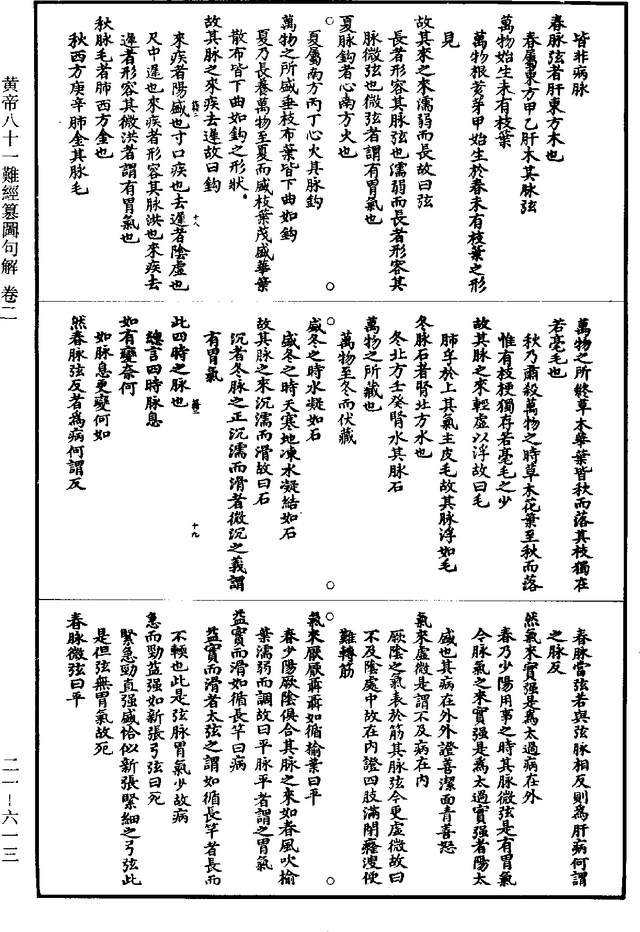 皆非病脉
春脉弦者肝東方木也
春屬東方甲乙肝木其脉弦
萬物始生未有枝葉
萬物根荄芽甲始生於春未有枝葉之形
見
故其來之來濡弱而長故曰弦
長者形容其脉弦也濡弱而長者形容其
脉微弦也微弦者謂有胃氣也
夏脉鈎者心南方火也
夏屬南方丙丁心火其脉鈎
萬物之所盛垂枝布葉皆下曲如鈎
夏乃長養萬物至夏而盛枝葉茂盛華葉
散布皆下曲如鈎之形狀
故其脉之來疾去遲故曰鈎
來疾者陽盛也寸口疾也去遲者陰虛也
尺中遲也來疾者形容其脉洪也來疾去
遲者形容其微洪者謂有胃氣也
秋脉毛者肺西方金也
秋西方庚辛肺金其脉毛
十八
萬物之所終草木華葉皆秋而落其枝獨在
若毫毛也
秋乃肅殺萬物之時草木花葉至秋而落
惟有枝梗獨存若毫毛之少
故其脉之來輕虛以浮故曰毛
肺浮於上其氣主皮毛故其脉浮如毛
冬脉石者腎北方水也
冬北方壬癸腎水其脉石
萬物之所藏也
萬物至冬而伏藏
盛冬之時水凝如石
盛冬之時天寒地凍水凝結如石
故其脉之來沉濡而滑故曰石
沉者冬脉之正沉濡而滑者微沉之義謂
有胃氣
此四時之脉也
總言四時脉息
如有變奈何
如脉息更變何如
然春脉弦反者為病何謂反
十九
春脉當弦若與弦脉相反則為肝病何謂
之脉反
然氣來實强是為太過病在外
春乃少陽用事之時其脉微弦是有胃氣
今脉氣之來實强是為太過實强者陽太
盛也其病在外外證善潔面青喜怒
氣來虛微是謂不及病在内
厥陰之氣表於筋其脉弦今更虛微故曰
不及陰處中故在内證四肢滿閉癃溲便
難轉筋
氣來厭厭聶聶如循榆葉曰平
春少陽厥陰俱合其脉之來如春風吹榆
葉濡弱而調故曰平脉平者謂之胃氣
益實而滑如循長竿曰病
益實而滑者太弦之謂如循長竿者長而
不輭也此是弦脉胃氣少故病
急而勁益强如新張弓弦曰死
緊急勁直强盛恰似新張緊細之弓弦此
是但弦無胃氣故死
春脉微弦曰平
黄帝八十一難經纂圖句解 卷二
二一—六一三